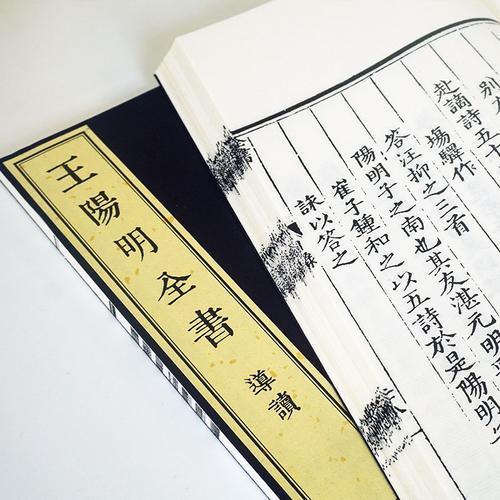 王陽明全書
導讀
別
赴謫詩五十
場驛作
答汪抑之三首
陽明子之南也其友湛元明
崔子鍾和之以五詩於是陽明
詠以答之